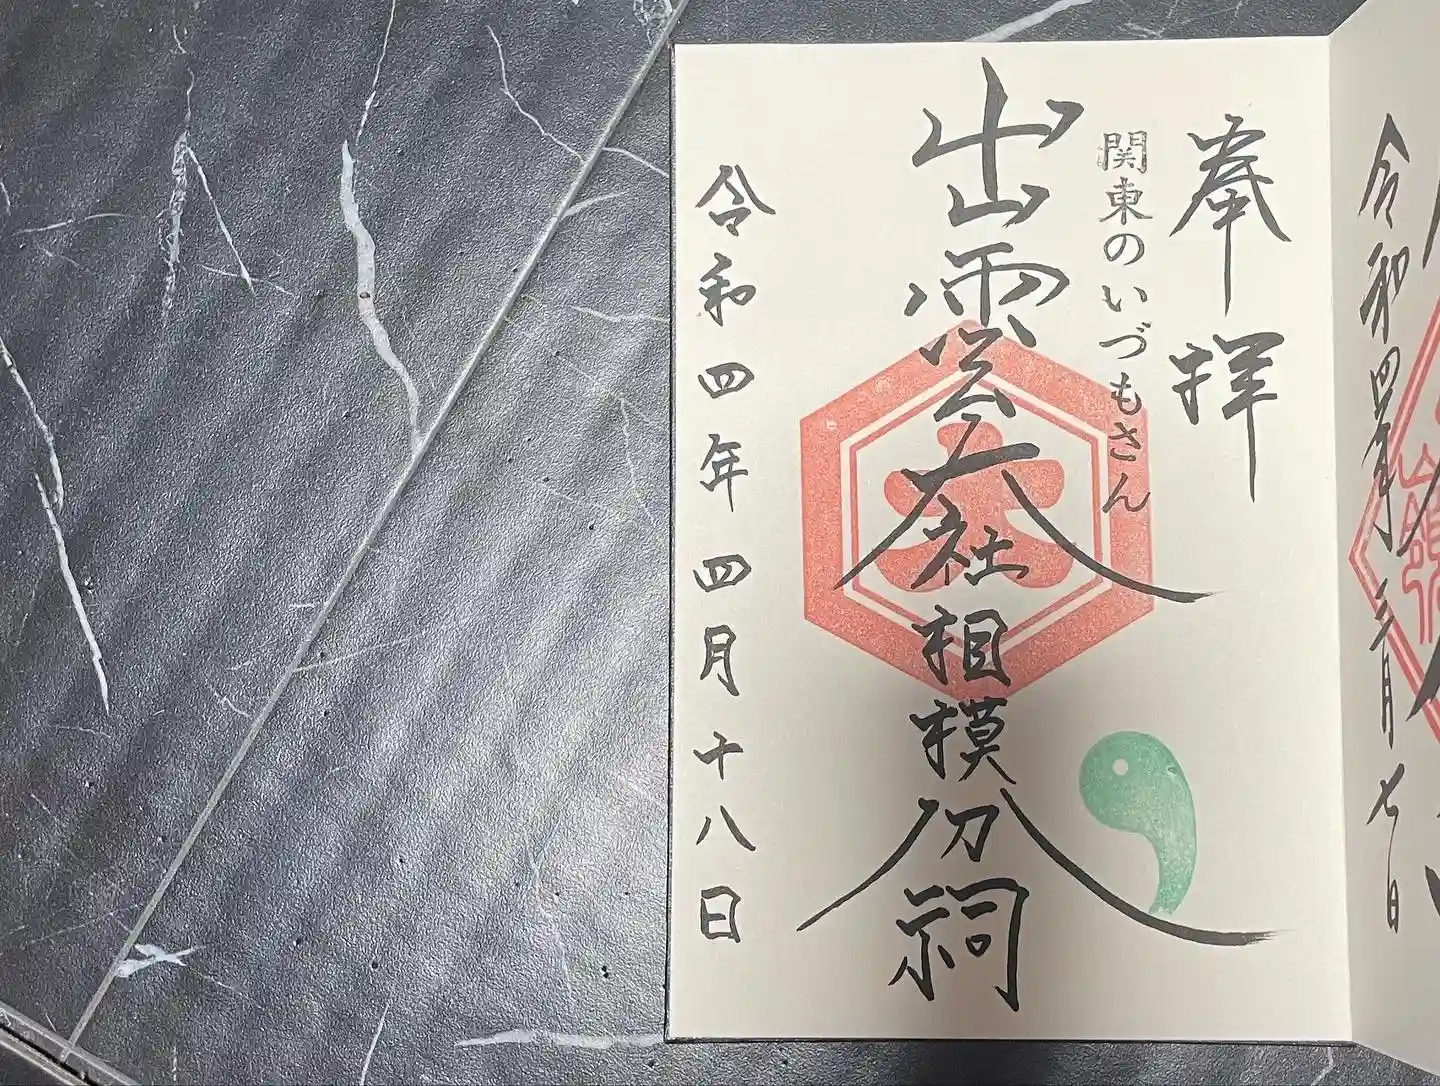 令和四年三月七日
奉拝
関東のいづもさん
出雲大社相模分祠
大
令和四年四月十八日